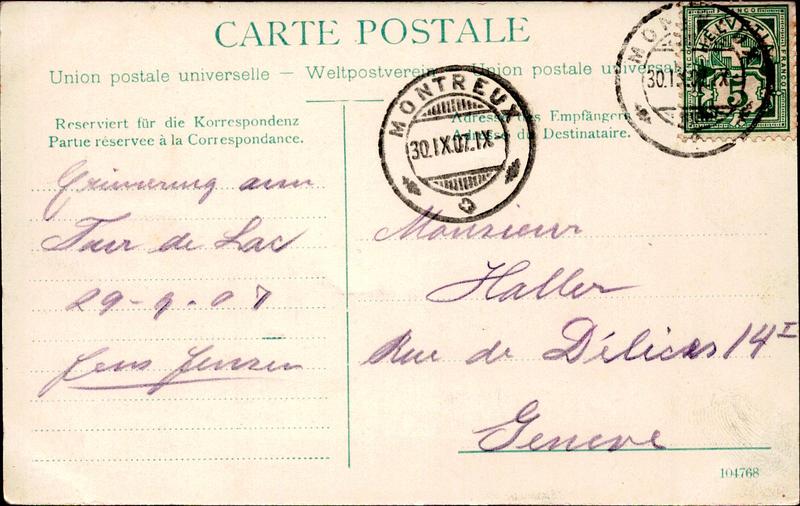 CARTE POSTALE
Union postale universelle — Weltpostverein — Union postale universale
Reserviert für die Korrespondenz
Partie réservée à la Correspondance.
Adresse des Empfängers
Adresse du Destinataire.
MONTREUX
30.IX.07.IX
MON
30.I
HELVETIA
FRANCO
5
Erinnerung am
Tour de Lac
29-9-07
Jens Jensen
Monsieur
Haller
Rue de Délices 14 I
Geneve
104768